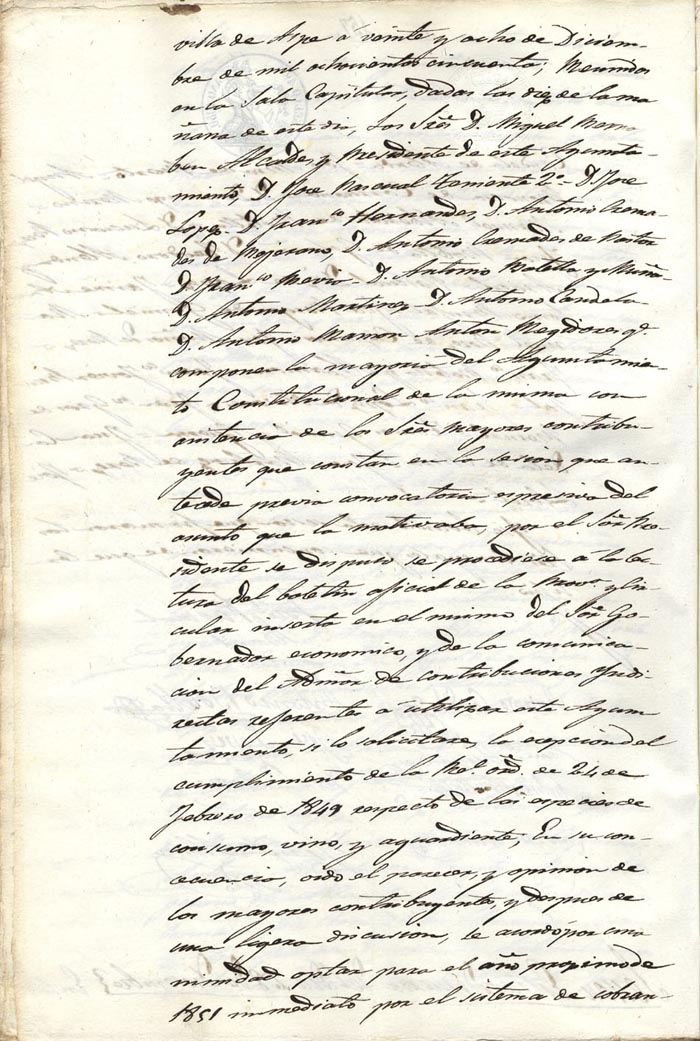 villa de Aspe a veinte y ocho de Diciem-
bre de mil ochocientos cincuenta; Reunidos
en la Sala Capitular, dadas las diez de la ma
ñana de este dia, Los Sres D. Miguel
Alcalde y Presidente de este Ayunta-
miento, D. Jose Pascual Teniente 2º D. Jose
Lopez D. Franco Hernandes, D. Antonio Crema-
des de D. Antonio Cremades de Pastor
D. Franco D. Antonio Botella y Muños
D. Antonio Martinez D. Antonio Candela
D. Antonio Anton Regidores qe
componen la mayoria del Ayuntamien-
to Constitucional de la misma con
asistencia de los Sres mayores contribu-
yentes que constan en la sesion que an-
tecede previa convocatoria espresiva del
asunto que la motivaba, por el Sor Pre-
sidente se dispuso se procediese á la lec
tura del boletin oficial de la Prova y Cir
cular inserta en el mismo del Sor Go-
bernador economico, y de la comunica-
cion del Admor de contribuciones Yndi-
rectas referentes á utilizar este Ayun
tamiento, si lo solicitare, la del
cumplimiento de la Rl ord. de 24 de
Febrero de 1849 respecto de las especies de
consumo, vino, y aguardiente, En su con-
secuencia, oido el parecer, y opinion de
los mayores contribuyente, y despues de
una ligera discusion, se acordó por una
nimidad optar para el año proximo de
1851 inmediato por el sistema de cobran-